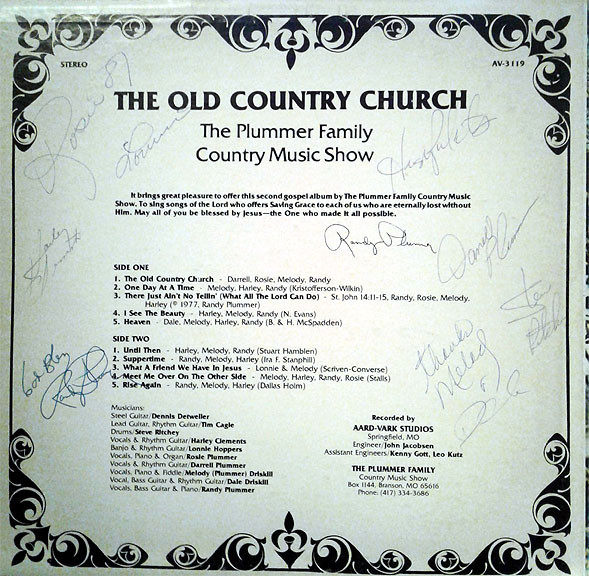 STEREO
AV-3119
Rosie 87
THE OLD COUNTRY CHURCH
The Plummer Family
Country Music Show
It brings great pleasure to offer this second gospel album by The Plummer Family Country Music
Show. To sing songs of the Lord who offers Saving Grace to each of us who are eternally lost without
Him. May all of you be blessed by Jesus—the One who made it all possible.
Randy Plummer
SIDE ONE
1. The Old Country Church - Darrell, Rosie, Melody, Randy
2. One Day At A Time - Melody, Harley, Randy (Kristofferson-Wilkin)
3. There Just Ain't No Tellin' (What All The Lord Can Do) - St. John 14:11-15, Randy, Rosie, Melody,
Harley (© 1977, Randy Plummer)
4. I See The Beauty - Harley, Melody, Randy (N. Evans)
5. Heaven - Dale, Melody, Harley, Randy (B. & H. McSpadden)
SIDE TWO
1. Until Then - Harley, Melody, Randy (Stuart Hamblen)
2. Suppertime - Randy, Melody, Harley (Ira F. Stanphill)
3. What A Friend We Have In Jesus - Lonnie & Melody (Scriven-Converse)
4. Meet Me Over On The Other Side - Melody, Harley, Randy, Rosie (Stalls)
5. Rise Again - Randy, Melody, Harley (Dallas Holm)
Thanks
Musicians:
Steel Guitar/Dennis Detweiler
Lead Guitar, Rhythm Guitar/Tim Cagle
Drums/Steve Ritchey
Vocals & Rhythm Guitar/Harley Clements
Banjo & Rhythm Guitar/Lonnie Hoppers
Vocals, Piano & Organ/Rosie Plummer
Vocals & Rhythm Guitar/Darrell Plummer
Vocals, Piano & Fiddle/Melody (Plummer) Driskill
Vocal, Bass Guitar & Rhythm Guitar/Dale Driskill
Vocals, Bass Guitar & Piano/Randy Plummer
Recorded by
AARD-VARK STUDIOS
Springfield, MO
Engineer/John Jacobsen
Assistant Engineers/Kenny Gott, Leo Kutz
THE PLUMMER FAMILY
Country Music Show
Box 1144, Branson, MO 65616
Phone: (417) 334-3686